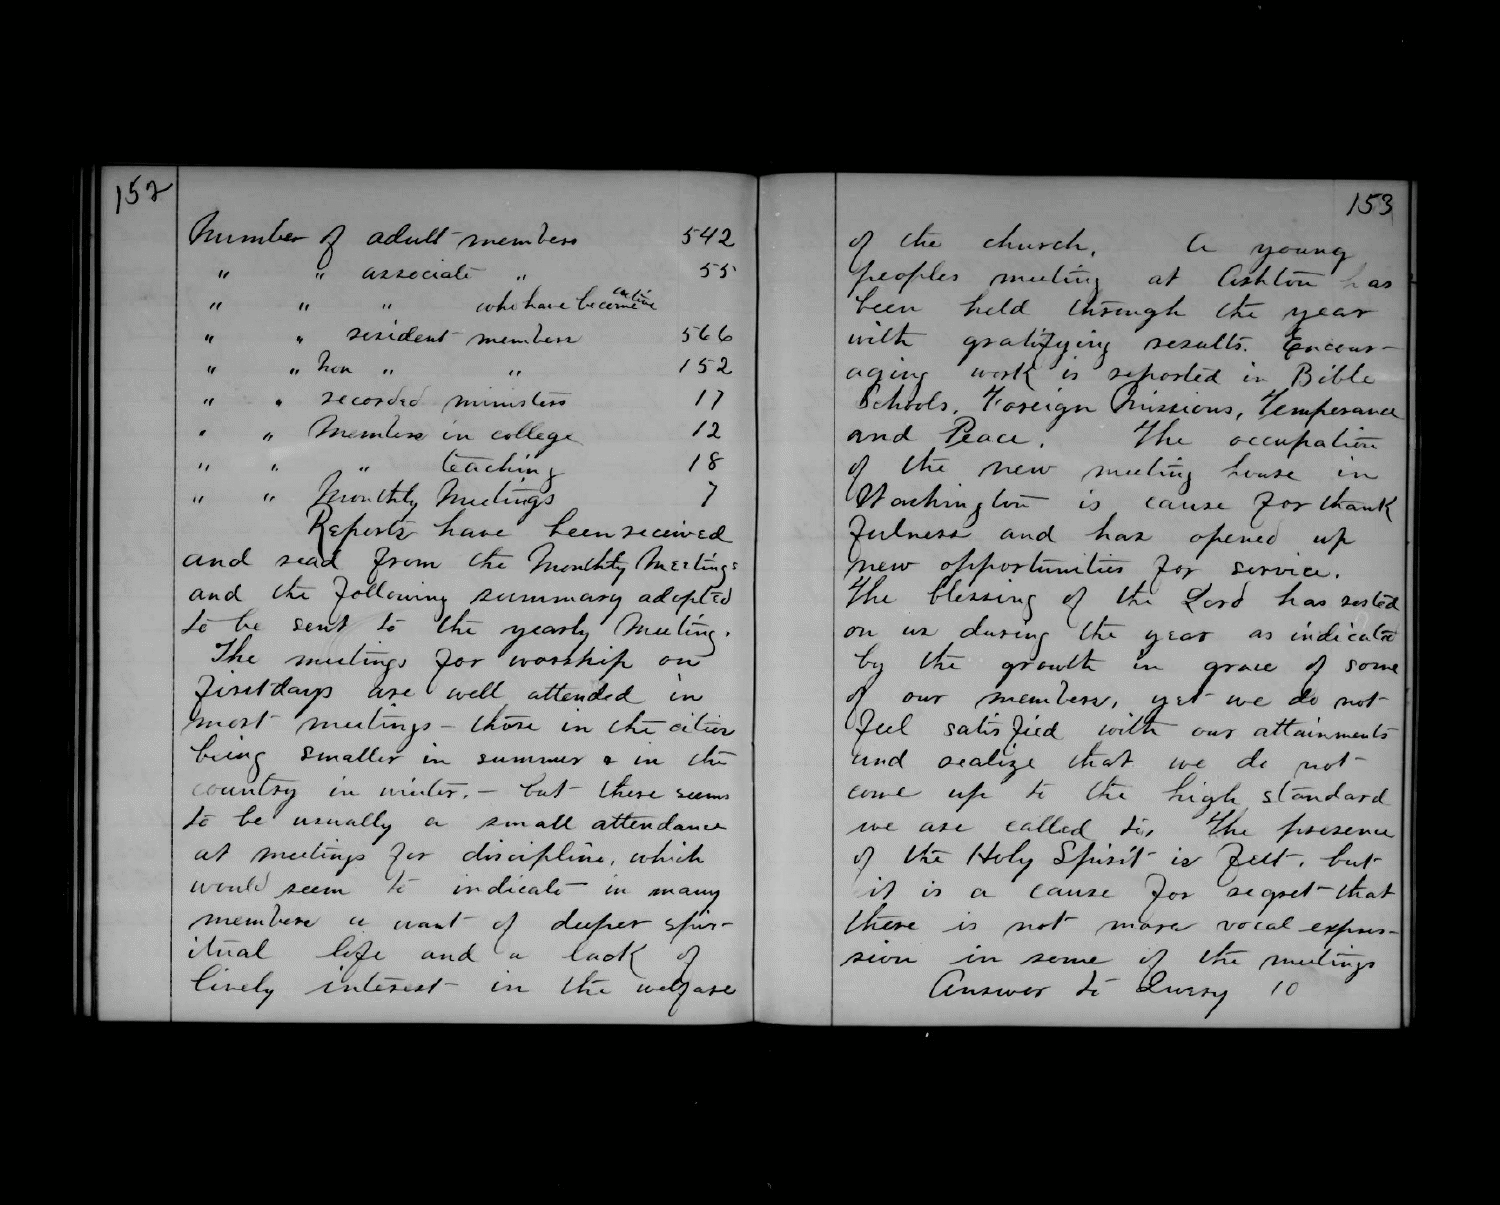 152
Number of adult members 542
" " associate " 55
" " " who have become active
" " resident members 566
" " Non " " 152
" " recorded ministers 17
" " Members in college 12
" " " teaching 18
" " Monthly Meetings 7
Reports have been received
and read from the Monthly Meetings
and the following summary adopted
to be sent to the yearly Meeting.
The meetings for worship on
first days are well attended in
most meetings - those in the cities
being smaller in summer & in the
country in winter. - but there seems
to be usually a small attendance
at meetings for discipline, which
would seem to indicate in many
members a want of deeper spir-
itual life and a lack of
lively interest in the welfare
153
of the church. A young
peoples meeting at Ashton has
been held through the year
with gratifying results. Encour-
aging work is reported in Bible
Schools, Foreign Missions, Temperance
and Peace. The occupation
of the new meeting house in
Washington is cause for thank
fulness and has opened up
new opportunities for service.
The blessing of the Lord has rested
on us during the year as indicated
by the growth in grace of some
of our members, yet we do not
feel satisfied with our attainments
and realize that we do not
come up to the high standard
we are called to. The presence
of the Holy Spirit is felt, but
it is a cause for regret that
there is not more vocal expres-
sion in some of the meetings
Answer to Query 10